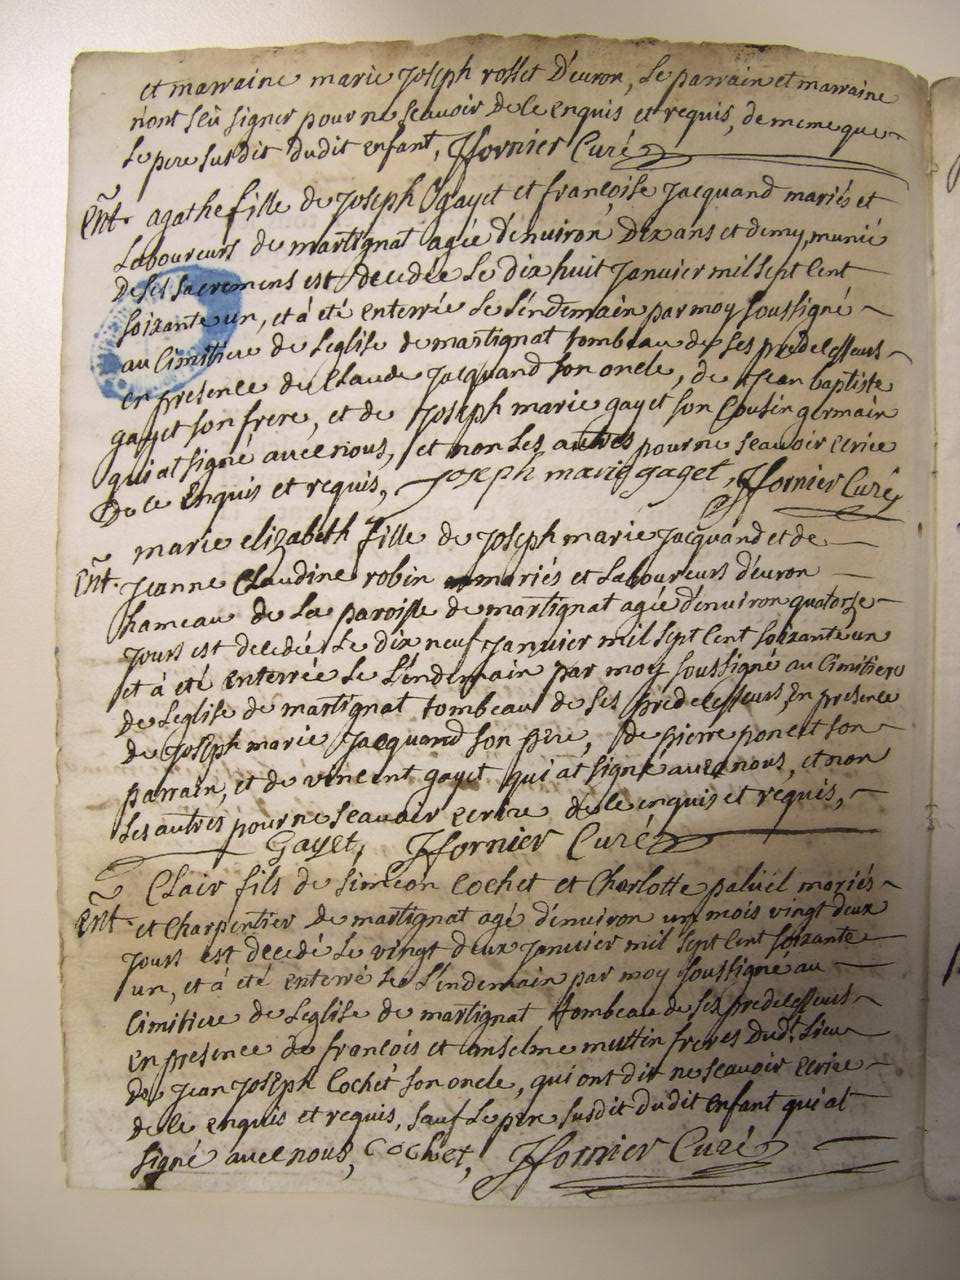 et marraine marie joseph rosset D'evron, Le parrain et marraine
n'ont seû signer pour ne sçeavoir de ce enquis et requis, de meme que
Le pere susdit dudit enfant, Ffornier Curé
Ent. agathe fille de joseph gayet et françoise jacquand mariés et
Laboureurs de martignat agée d'environ Dix ans et demy, munie
De ses sacremens est decedée Le dix huit janvier mil sept Cent
soixante un, et à été enterrée Le L'endemain par moy soussigné
au Cimitiere de L'eglise de martignat tombeau de ses predecesseurs
en presence de Claude jacquand son oncle, de jean baptiste
gayet son frere, et de joseph marie gayet son Cousin germain
qui at signé avec nous, et non Les autres pour ne sçeavoir ecrire
De ce enquis et requis, joseph marie gayet, Ffornier Curé
marie elizabeth fille de joseph marie jacquand et de
Ent. jeanne Claudine robin mariés et Laboureurs d'evron
hameau de La paroisse de martignat agée d'environ quatorze
jours est decedée Le dix neuf janvier mil sept Cent soixante un
et à été enterrée Le L'endemain par moy soussigné au Cimitiere
de L'eglise de martignat tombeau de ses predecesseurs, en presence
de joseph marie jacquand son pere, de pierre poncet son
parrain, et de vincent gayet qui at signé avec nous, et non
Les autres pour ne sçeavoir ecrire de ce enquis et requis,
Gayet, Ffornier Curé
Clair fils de simeon Cochet et Charlotte paluël mariés
Ent. et Charpentier de martignat agé d'environ un mois vingt deux
jours est decedé Le vingt deux janvier mil sept Cent soixante
un, et à été enterré Le L'endemain par moy soussigné au
Cimitiere de L'eglise de martignat tombeau de ses predecesseurs
en presence de françois et anselme mustin freres Dud.t Lieu
de jean joseph Cochet son oncle, qui ont dit ne sçeavoir ecrire
de ce enquis et requis, sauf Le pere susdit dudit enfant qui at
signé avec nous, Cochet, Ffornier Curé